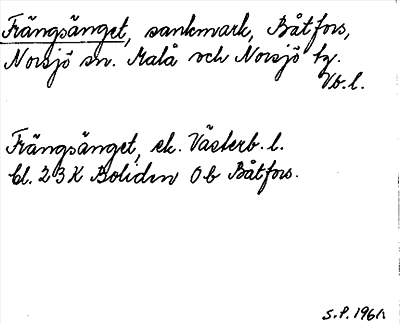 Frängsänget, sankmark, Båtfors,
Norsjö sn. Malå och Norsjö tg.
Vb. l.
Frängsänget, ek. Västerb. l.
bl. 23 K Boliden 0b Båtfors.
S.P. 1961